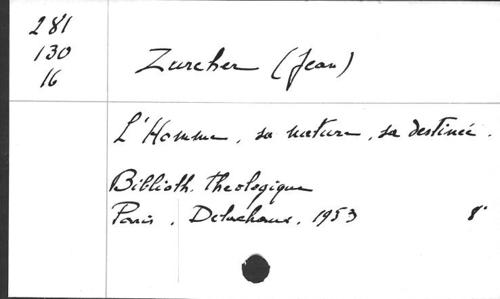 281
130
16
Zurcher (Jean)
L'Homme, sa nature, sa destinée.
Biblioth. théologique
Paris, Delachaux, 1953 8°